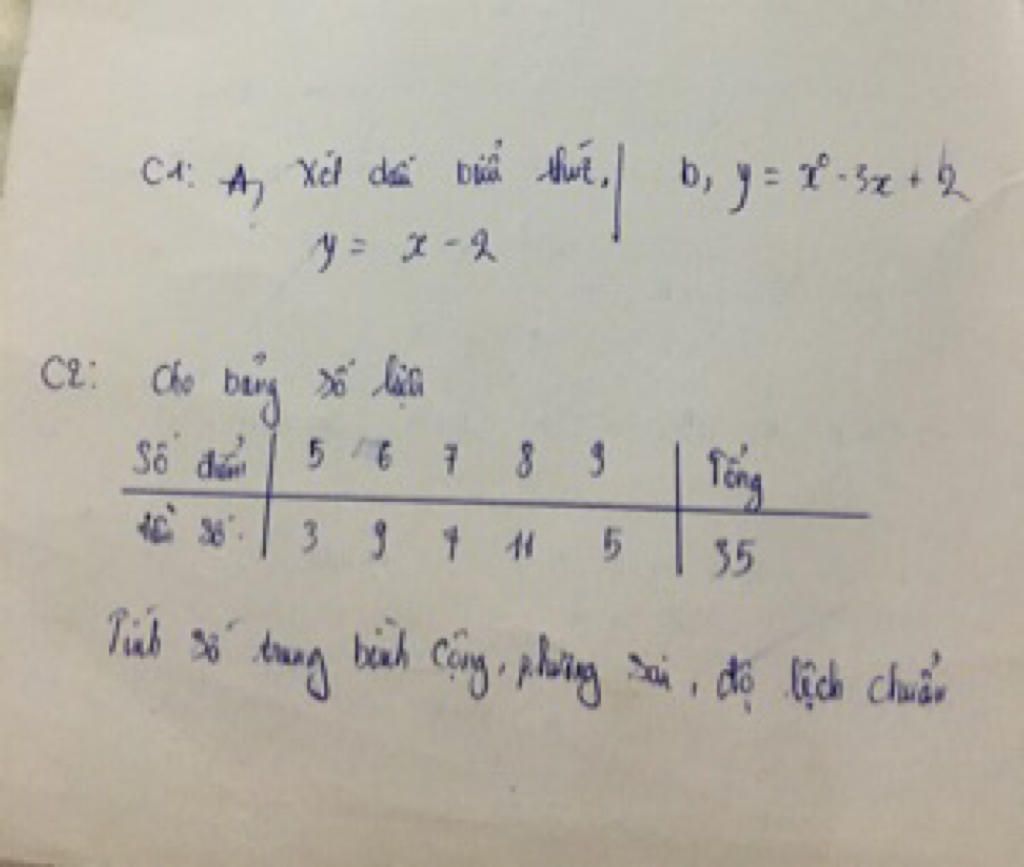 C1: A, Xét dấu biểu thức. | b, y = x² - 3x + 2
y = x - 2
C2: Cho bảng số liệu
Số điểm | 5 6 7 8 9 | Tổng
tần số. | 3 9 7 11 5 | 35
Tính số trung bình cộng, phương sai, độ lệch chuẩn